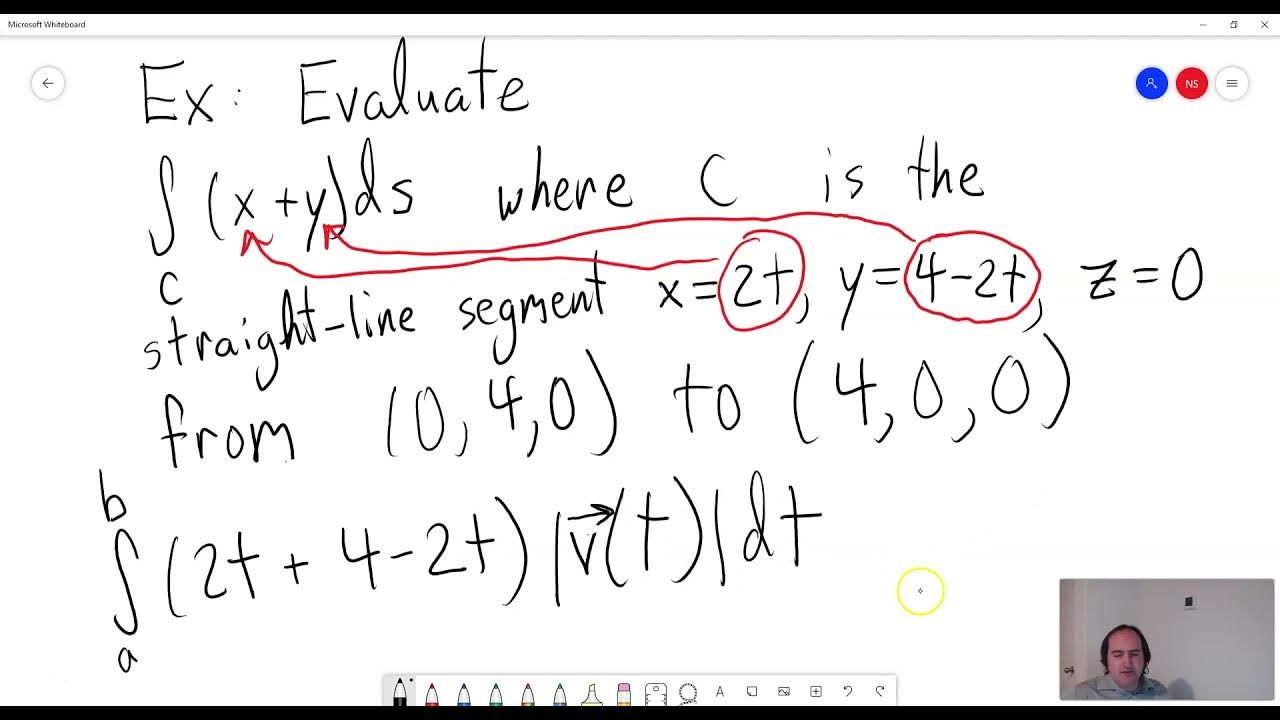 Microsoft Whiteboard
NS
Ex: Evaluate
∫ (x+y)ds where C is the
C
straight-line segment x=2t, y=4-2t, z=0
from (0,4,0) to (4,0,0)
b
∫ (2t + 4-2t) |v⃗(t)|dt
a
A